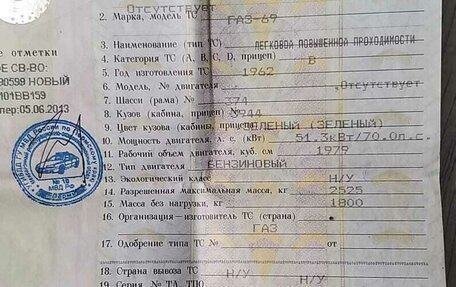 Отсутствует
2. Марка, модель ТС ГАЗ-69
3. Наименование (тип ТС) ЛЕГКОВОЙ ПОВЫШЕННОЙ ПРОХОДИМОСТИ
4. Категория ТС (A, B, C, D, прицеп) В
5. Год изготовления ТС 1962
6. Модель, № двигателя Отсутствует
7. Шасси (рама) № 374
8. Кузов (кабина, прицеп) № 944
9. Цвет кузова (кабины, прицепа) ЗЕЛЕНЫЙ (ЗЕЛЕНЫЙ)
10. Мощность двигателя, л. с. (кВт) 51.3кВт/70.0л.с.
11. Рабочий объем двигателя, куб. см 1979
12. Тип двигателя БЕНЗИНОВЫЙ
13. Экологический класс Н/У
14. Разрешенная максимальная масса, кг 2525
15. Масса без нагрузки, кг 1800
16. Организация—изготовитель ТС (страна)
ГАЗ
17. Одобрение типа ТС №
18. Страна вывоза ТС Н/У
19. Серия, № ТД, ТПО Н/У
е отметки
Е СВ-ВО:
90599 НОВЫЙ
101ВВ159
пер:05.06.2013
МВД РФ